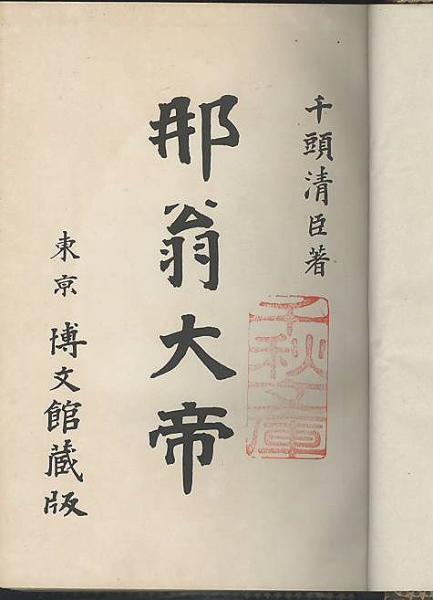 千頭清臣著
千秋文庫
那翁大帝
東京 博文館藏版